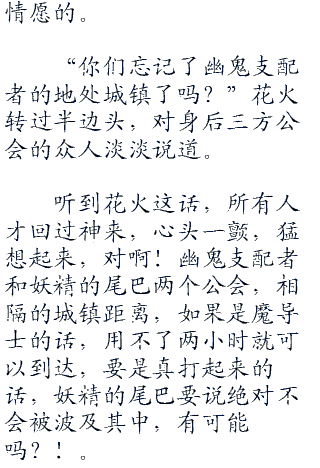 情愿的。
“你们忘记了幽鬼支配
者的地处城镇了吗？”花火
转过半边头，对身后三方公
会的众人淡淡说道。
听到花火这话，所有人
才回过神来，心头一颤，猛
想起来，对啊！幽鬼支配者
和妖精的尾巴两个公会，相
隔的城镇距离，如果是魔导
士的话，用不了两小时就可
以到达，要是真打起来的
话，妖精的尾巴要说绝对不
会被波及其中，有可能
吗？！。